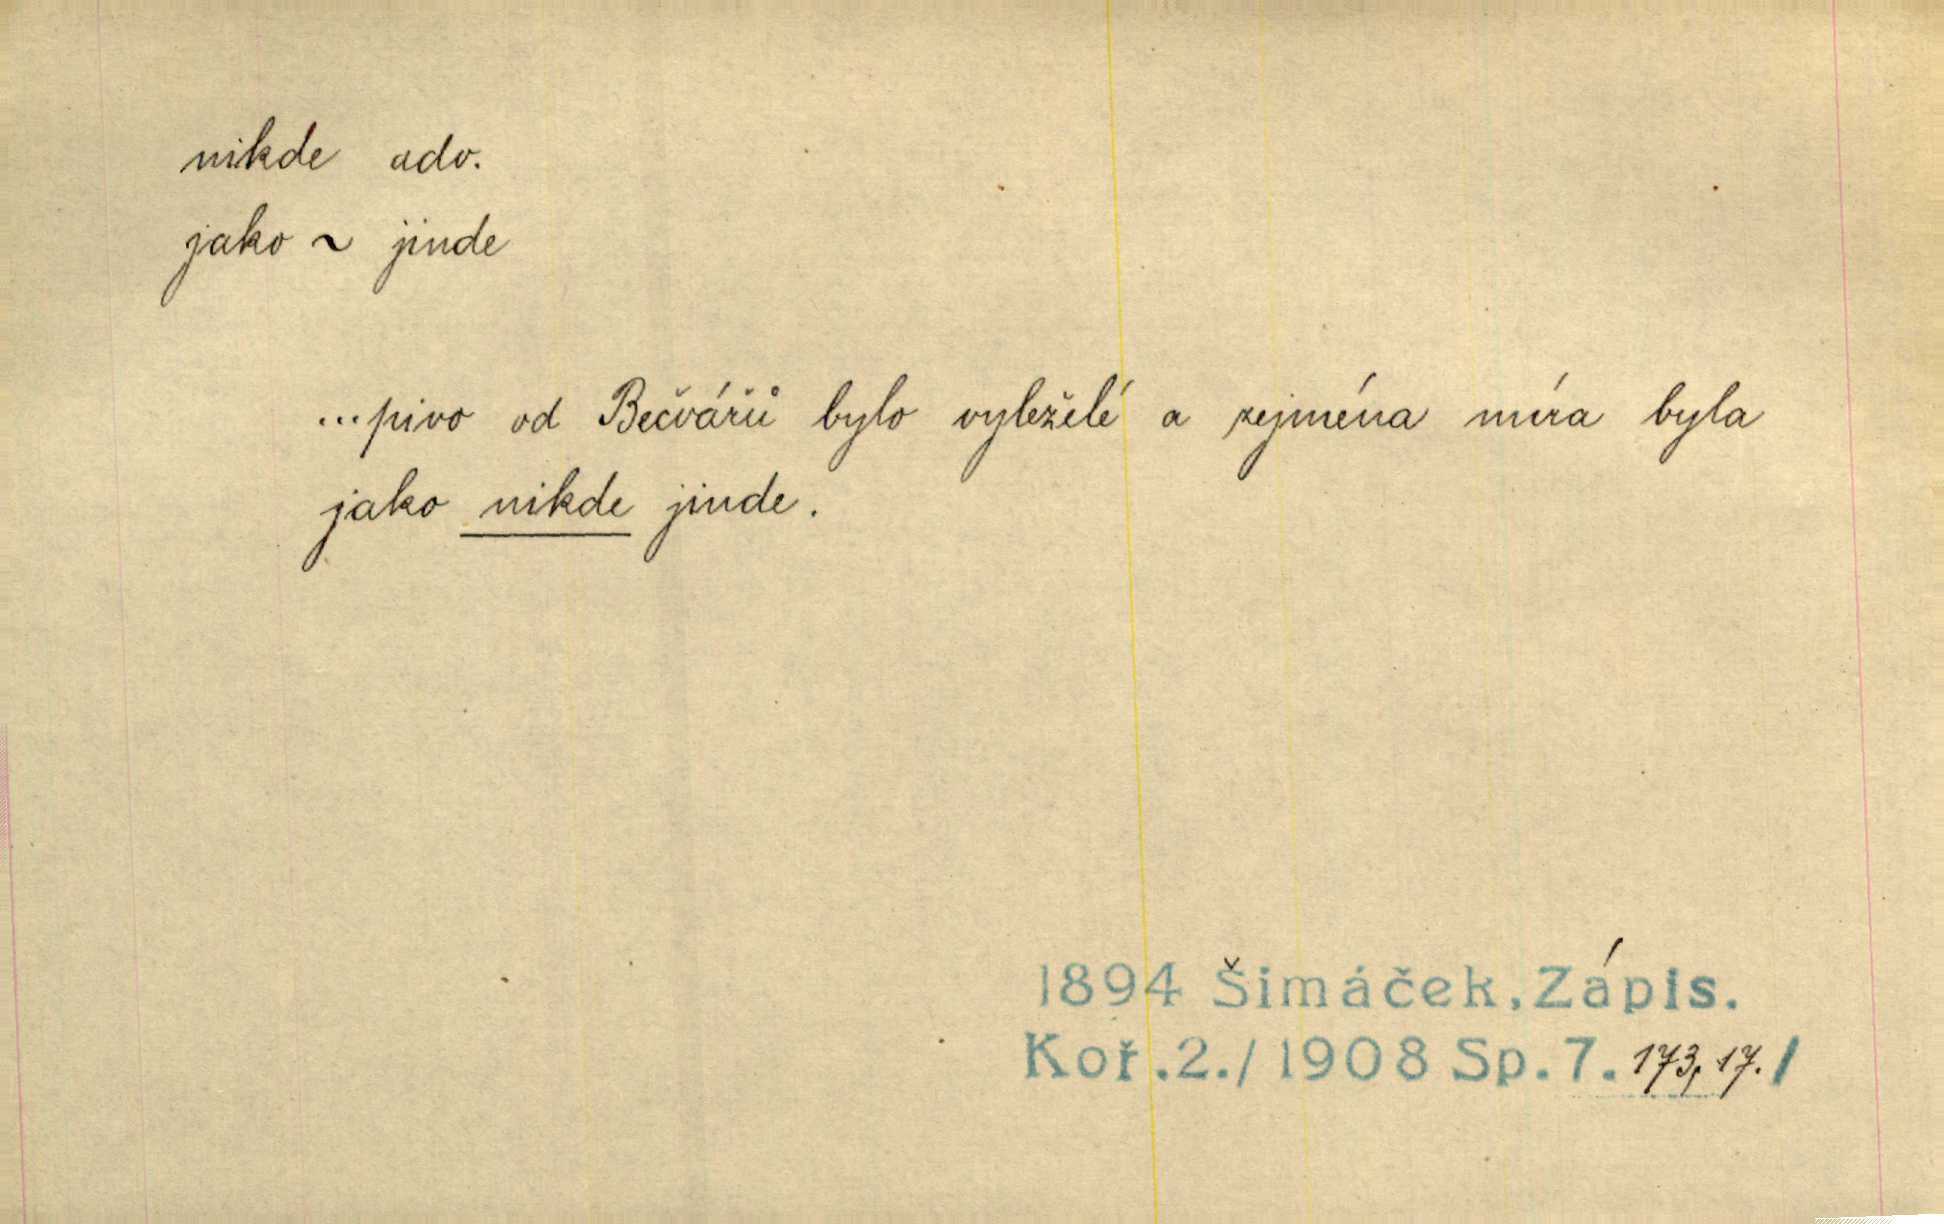 nikde adv.
jako ~ jinde
...pivo od Bečvářů bylo vyleželé a zejména míra byla
jako nikde jinde.
1894 Šimáček, Zápis.
Koř.2./1908 Sp.7. 173, 17./